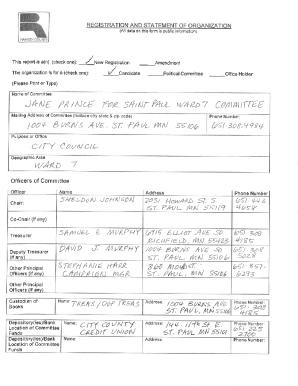 RAMSEY COUNTY
REGISTRATION AND STATEMENT OF ORGANIZATION
(All data on this form is public information)
This report is a(n) (check one): ✓ New Registration Amendment
The organization is for a (check one): ✓ Candidate Political Committee Office Holder
(Please Print or Type)
Name of Committee
JANE PRINCE FOR SAINT PAUL WARD 7 COMMITTEE
Mailing Address of Committee (include city state & zip code) Phone Number:
1004 BURNS AVE. ST. PAUL MN 55106 651-308-4984
Purpose or Office
CITY COUNCIL
Geographic Area
WARD 7
Officers of Committee
Officer Name Address Phone Number
Chair: SHELDON JOHNSON 2031 HOWARD ST S ST. PAUL MN 55119 651 442 4658
Co-Chair (if any)
Treasurer SAMUEL E MURPHY 6915 ELLIOT AVE SO RICHFIELD, MN 55423 651 308 4185
Deputy Treasurer (if any) DAVID J. MURPHY 1004 BURNS AVE ST. PAUL MN 55106 5028
Other Principal Officers (if any) STEPHANIE HARR CAMPAIGN MGR ST. PAUL, MN 55106 6293
Other Principal Officers (if any)
Custodian of Books Name: TREAS/DEP TREAS Address: 1004 BURNS AVE ST. PAUL MN 55106 Phone Number: 651-308 4185
Depository(ies)/Bank Location of Committee Funds Name: CITY COUNTY CREDIT UNION Address: 144 11TH ST E. ST. PAUL MN 55101 Phone Number: 651 225 2700
Depository(ies)/Bank Location of Committee Funds Name: Address: Phone Number: